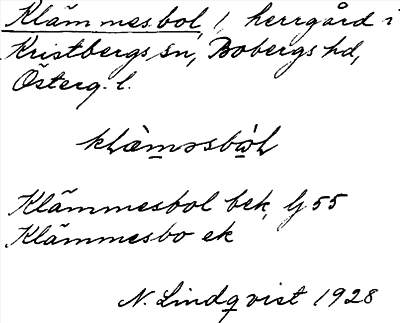 Klämmesbol, /, herrgård i
Kristbergs sn, Bobergs hd,
Österg. l.
klä̀mǝsbὼl
Klämmesbol bek, Gj 55
Klämmesbo ek
N. Lindqvist 1928